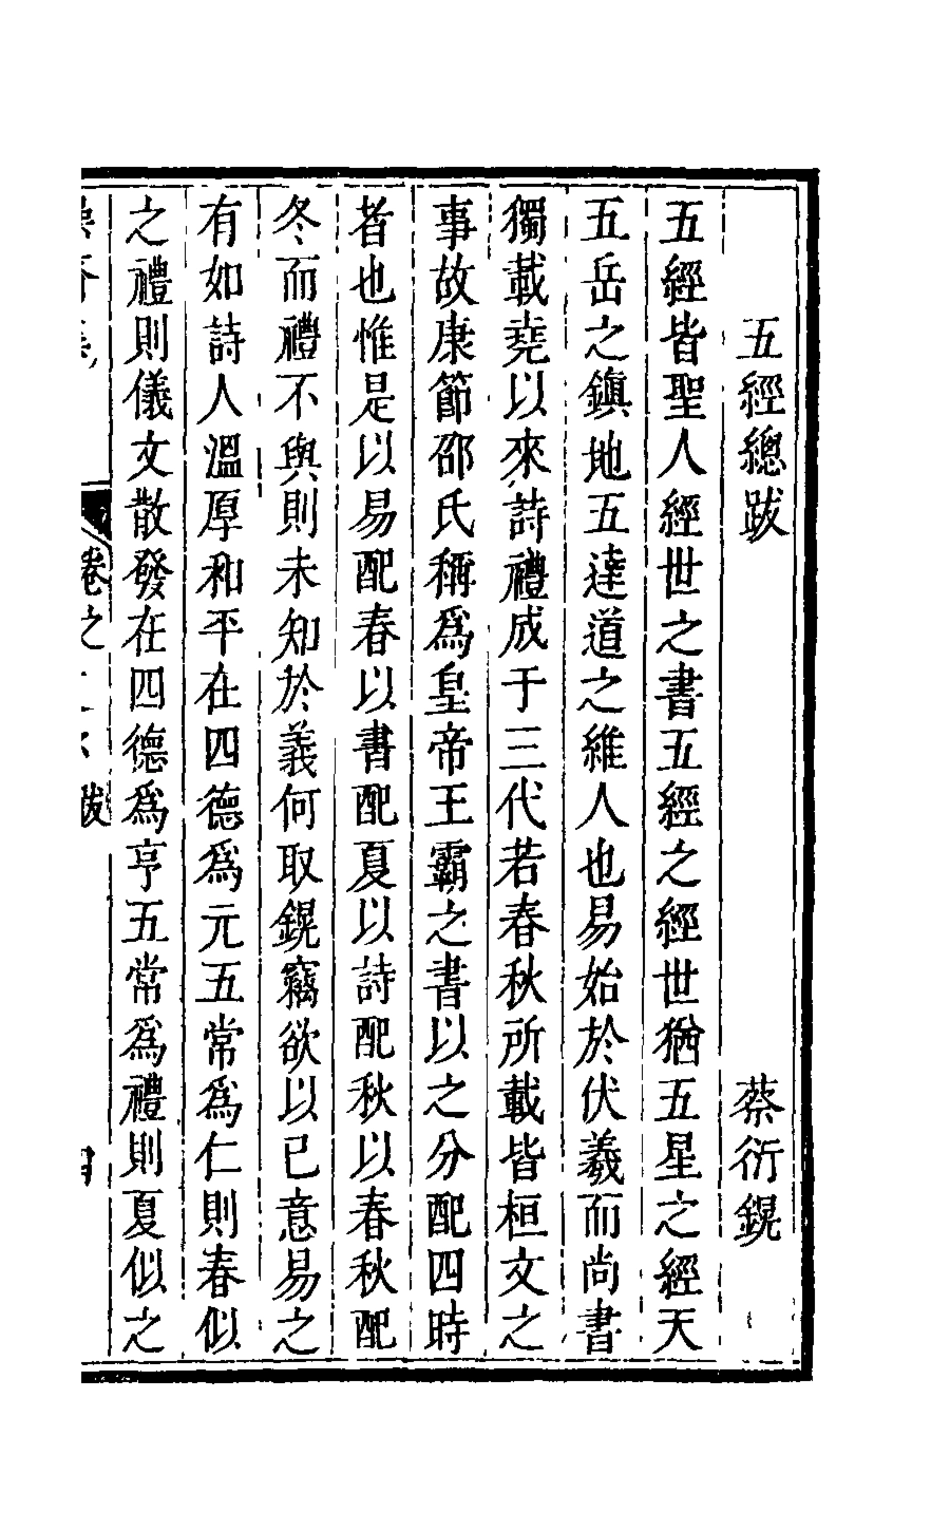 五經總跋 蔡衍鎤
五經皆聖人經世之書五經之經世猶五星之經天
五岳之鎮地五達道之維人也易始於伏羲而尚書
獨載堯以來詩禮成于三代若春秋所載皆桓文之
事故康節邵氏稱爲皇帝王霸之書以之分配四時
者也惟是以易配春以書配夏以詩配秋以春秋配
冬而禮不與則未知於義何取鎤竊欲以已意易之
有如詩人溫厚和平在四德爲元五常爲仁則春似
之禮則儀文散發在四德爲亨五常爲禮則夏似之
卷之
跋